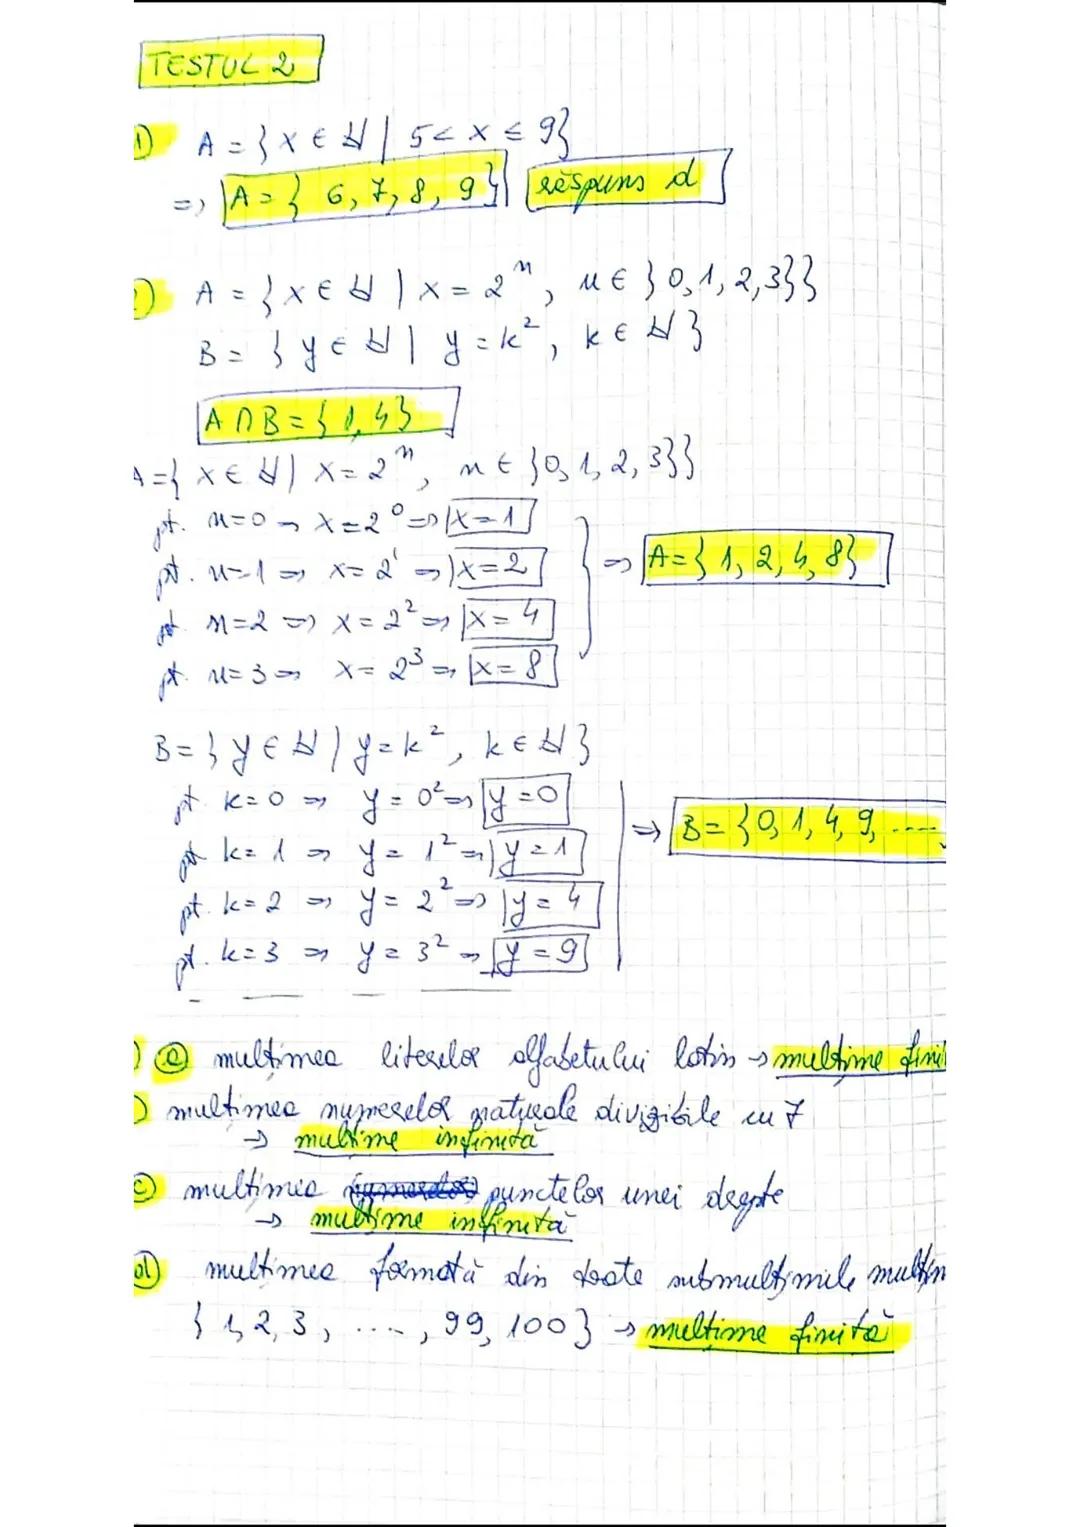 TESTUL 2
1) A = {x ∈ ℕ | 5 < x ≤ 9}
=> A = {6, 7, 8, 9} răspuns d
) A = {x ∈ ℕ | x = 2ⁿ, n ∈ {0, 1, 2, 3}}
B = {y ∈ ℕ | y = k², k ∈ ℕ}
A ∩ B = {1, 4}
A = {x ∈ ℕ | x = 2ⁿ, n ∈ {0, 1, 2, 3}}
pt. n=0 => x = 2⁰ => x = 1
pt. n=1 => x = 2¹ => x = 2
pt. n=2 => x = 2² => x = 4
pt. n=3 => x = 2³ => x = 8
=> A = {1, 2, 4, 8}
B = {y ∈ ℕ | y = k², k ∈ ℕ}
pt. k=0 => y = 0² => y = 0
pt. k=1 => y = 1² => y = 1
pt. k=2 => y = 2² => y = 4
pt. k=3 => y = 3² => y = 9
=> B = {0, 1, 4, 9, ....
) a) mulțimea literelor alfabetului latin → mulțime fini
) mulțimea numerelor naturale divizibile cu 7
→ mulțime infinită
c) mulțimea punctelor unei drepte
→ mulțime infinită
d) mulțimea formată din toate submulțimile mulțim
{1, 2, 3, ...., 99, 100} → mulțime finită